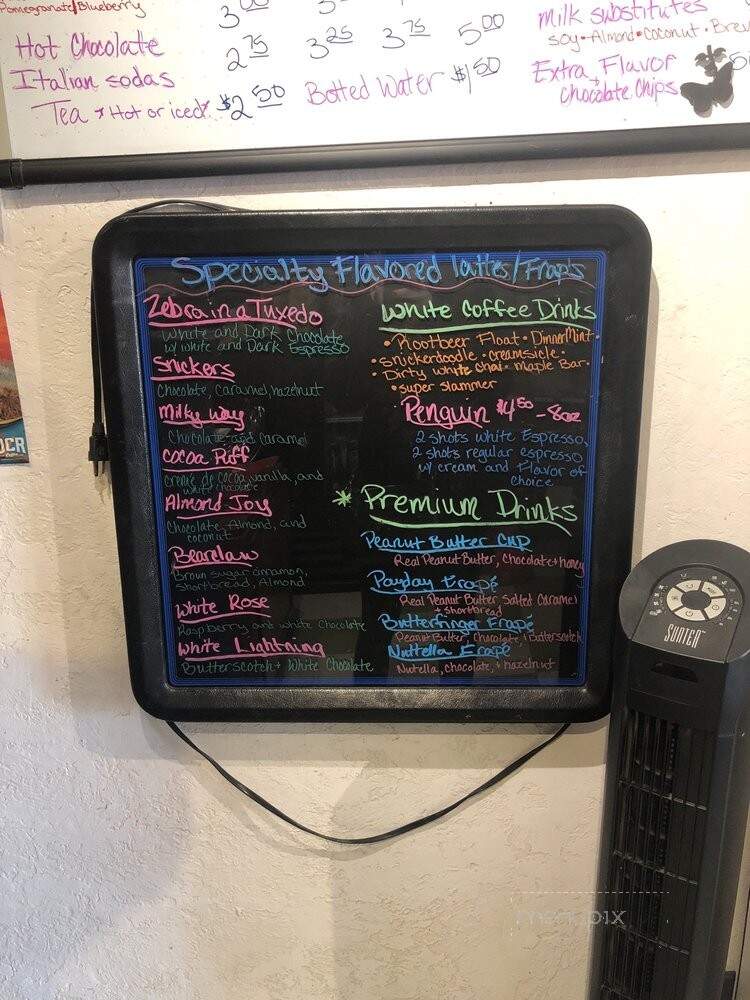 Pomegranate/Blueberry
3.00
Hot Chocolate 2.75 3.25 3.75 5.00
Italian sodas
Tea *Hot or iced* $2.50 Botted Water $1.50
Milk substitutes
soy • Almond • Coconut
Extra Flavor
Chocolate Chips
Specialty Flavored lattes/Fraps
Zebra in a Tuxedo
White and Dark Chocolate
w/ white and Dark Espresso
Snickers
Chocolate, caramel, hazelnut
Milky way
Chocolate and Caramel
Cocoa Puff
creme de cocoa, vanilla, and
white chocolate
Almond Joy
Chocolate, Almond, and
coconut
Bearclaw
Brown sugar cinnamon,
shortbread, Almond
White Rose
Raspberry and White Chocolate
White Lightning
Butterscotch + White Chocolate
White Coffee Drinks
• Rootbeer Float • Dinner Mint •
• Snickerdoodle • creamsicle •
• Dirty white chai • Maple Bar •
• super slammer
Penguin $4.50 - 8oz
2 shots white Espresso,
2 shots regular espresso
w/ cream and Flavor of
choice
* Premium Drinks
Peanut Butter Cup
Real Peanut Butter, Chocolate + honey
Payday Frapé
Real Peanut Butter Salted Caramel
+ shortbread
Butterfinger Frapé
Peanut Butter, Chocolate, + butterscotch
Nuttella Frapé
Nutella, chocolate, + hazelnut
OCR
SUNTER
menupix